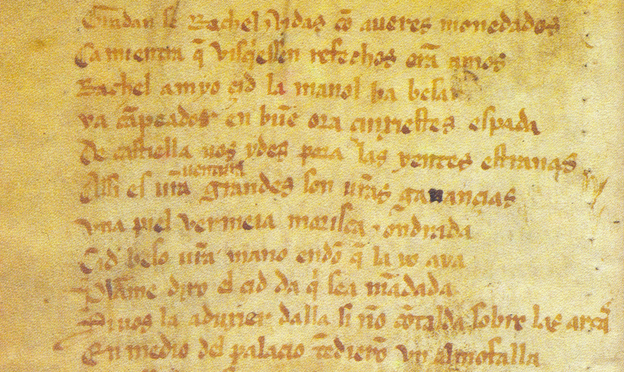 Gradan se Rachel ⁊ vidas cõ aueres monedados
Ca mientra q̃ visq̃essen refechos erã amos
Rachel amyo çid la manol ba besar
ya cãpeador en buẽ ora cinxiestes espada
De castiella uos ydes pora las yentes estranas
Assi es ur̃a uentura grandes son ur̃as ganançias
Vna piel vermeia morisca ⁊ ondrada
Çid beso ur̃a mano endõ q̃ la yo aya
Plazme dixo el çid da q̃ sea mãdada
Siuos la aduxier dalla si nõ cõtalda sobre las arcas
En medio del palaçio tẽdierõ vn almofalla